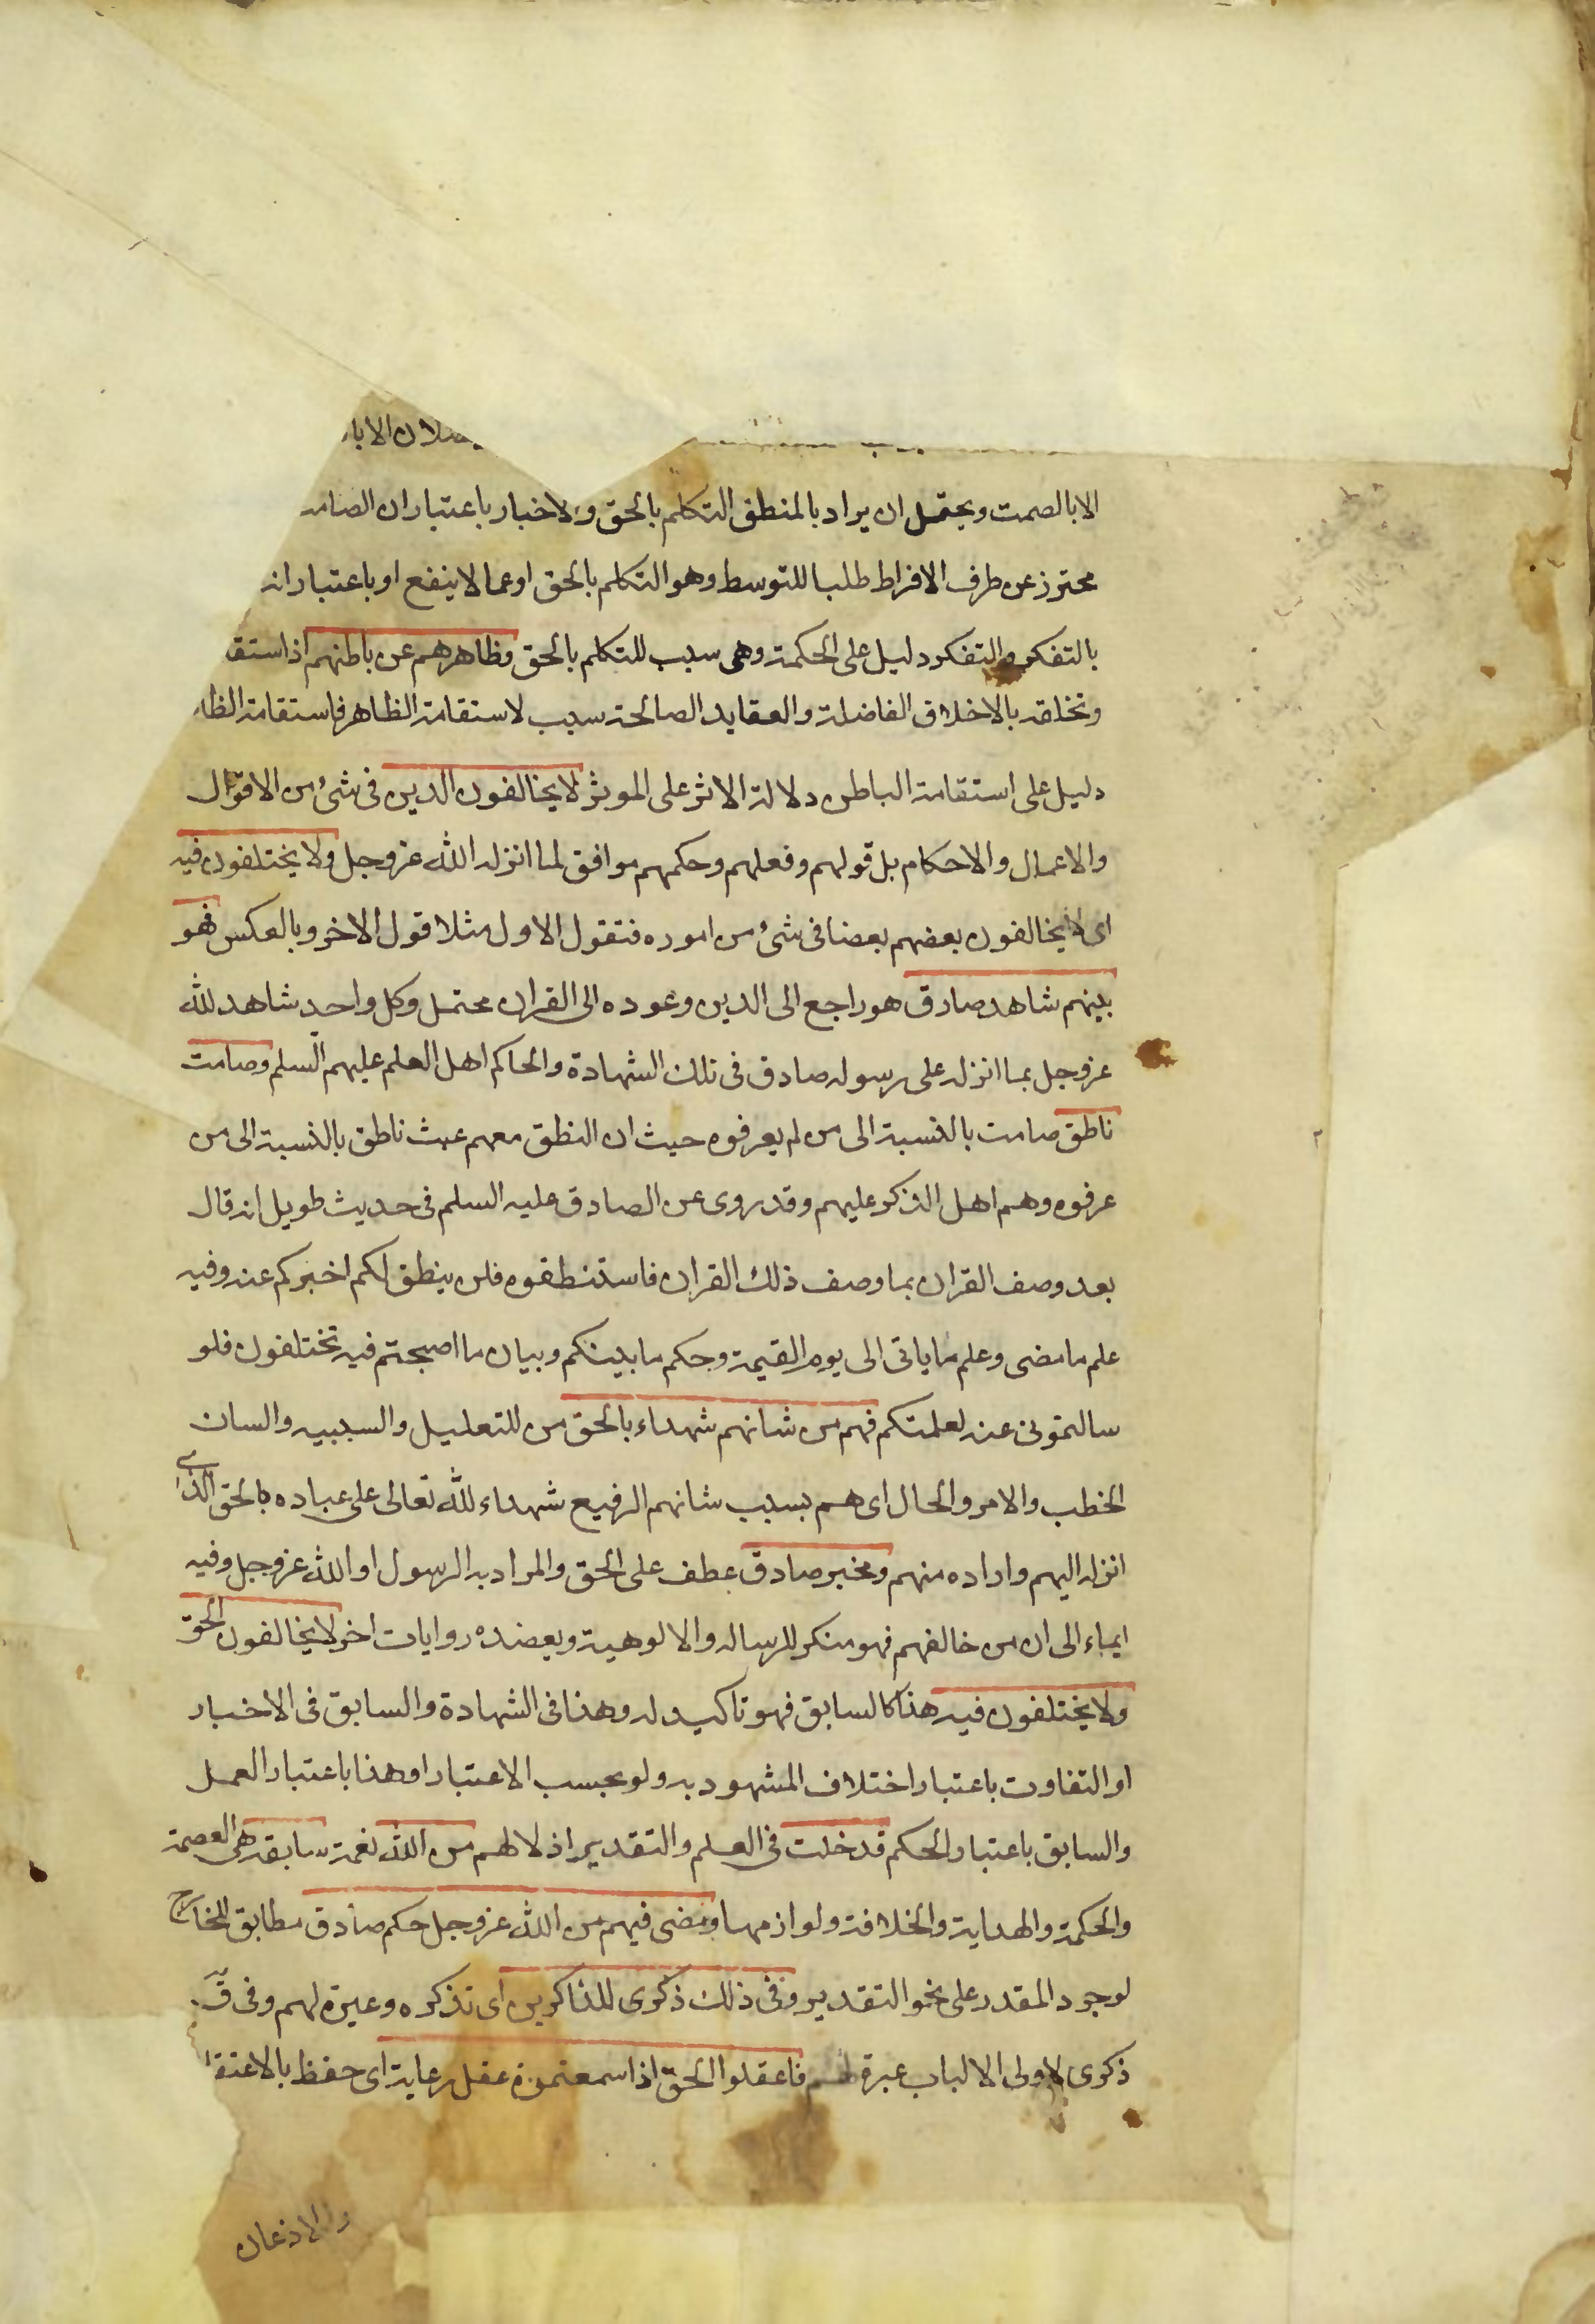 الابا
الا بالصمت ويحتمل ان يراد بالمنطق التكلم بالحق والاخبار باعتبار ان الصامـ
محترز عن طرف الافراط طلبا للتوسط وهو التكلم بالحق اوعما لا ينفع او باعتبار انه
بالتفكر والتفكر دليل على الحكمة وهى سبب للتكلم بالحق وظاهرهم عن باطنهم اذ استقـ
وتخلقه بالاخلاق الفاضلة والعقايد الصالحة سبب لاستقامة الظاهر فاستقامة الظا
دليل على استقامة الباطن دلالة الاثر على الموثر لا يخالفون الدين فى شئ من الاقوال
والاعمال والاحكام بل قولهم وفعلهم وحكمهم موافق لما انزله الله عز وجل ولا يختلفون فيه
اى لا يخالفون بعضهم بعضا فى شئ من اموره فتقول الاول مثلا قول الاخر وبالعكس فهو
بينهم شاهد صادق هو راجع الى الدين وعوده الى القران محتمل وكل واحد شاهد لله
عز وجل بما انزله على رسوله صادق فى تلك الشهادة والحاكم اهل العلم عليهم السلم وصامت
ناطق صامت بالنسبة الى من لم يعرفوه حيث ان النطق معهم عبث ناطق بالنسبة الى من
عرفوه وهم اهل الذكر عليهم وقد روى عن الصادق عليه السلم فى حديث طويل انه قال
بعد وصف القران بما وصف ذلك القران فاستنطقوه فلن ينطق لكم اخبركم عنه وفيه
علم ما مضى وعلم ما ياتى الى يوم القيمة وحكم ما بينكم وبيان ما اصبحتم فيه تختلفون فلو
سالتمونى عنه لعلمتكم فهم من شانهم شهداء بالحق من للتعليل والسببيه والسان
الخطب والامر والحال اى هم بسبب شانهم الرفيع شهداء لله تعالى على عباده بالحق الذى
انزله اليهم واراده منهم ومخبر صادق عطف على الحق والمراد به الرسول او الله عز وجل وفيه
ايماء الى ان من خالفهم فهو منكر للرساله والالوهية ويعضده روايات اخر لا يخالفون الحق
ولا يختلفون فيه هذا كالسابق فهو تاكيد له وهذا فى الشهادة والسابق فى الاخبار
او التفاوت باعتبار اختلاف المشهود به ولو بحسب الاعتبار او هذا باعتبار العمل
والسابق باعتبار الحكم قد خلت فى العلم والتقدير اذ لا لهم من الله نعمة سابقة هى العصمة
والحكمة والهداية والخلافة ولوازمها ومضى فيهم من الله عز وجل حكم صادق مطابق للخارج
لوجود المقدر على نحو التقدير وفى ذلك ذكرى للذاكرين اى تذكره وعبرة لهم وفى ق
ذكرى لاولى الالباب عبرة لهم فاعقلوا الحق اذا سمعتموه عقل رعاية اى حفظ بالاعتقا
والاذعان